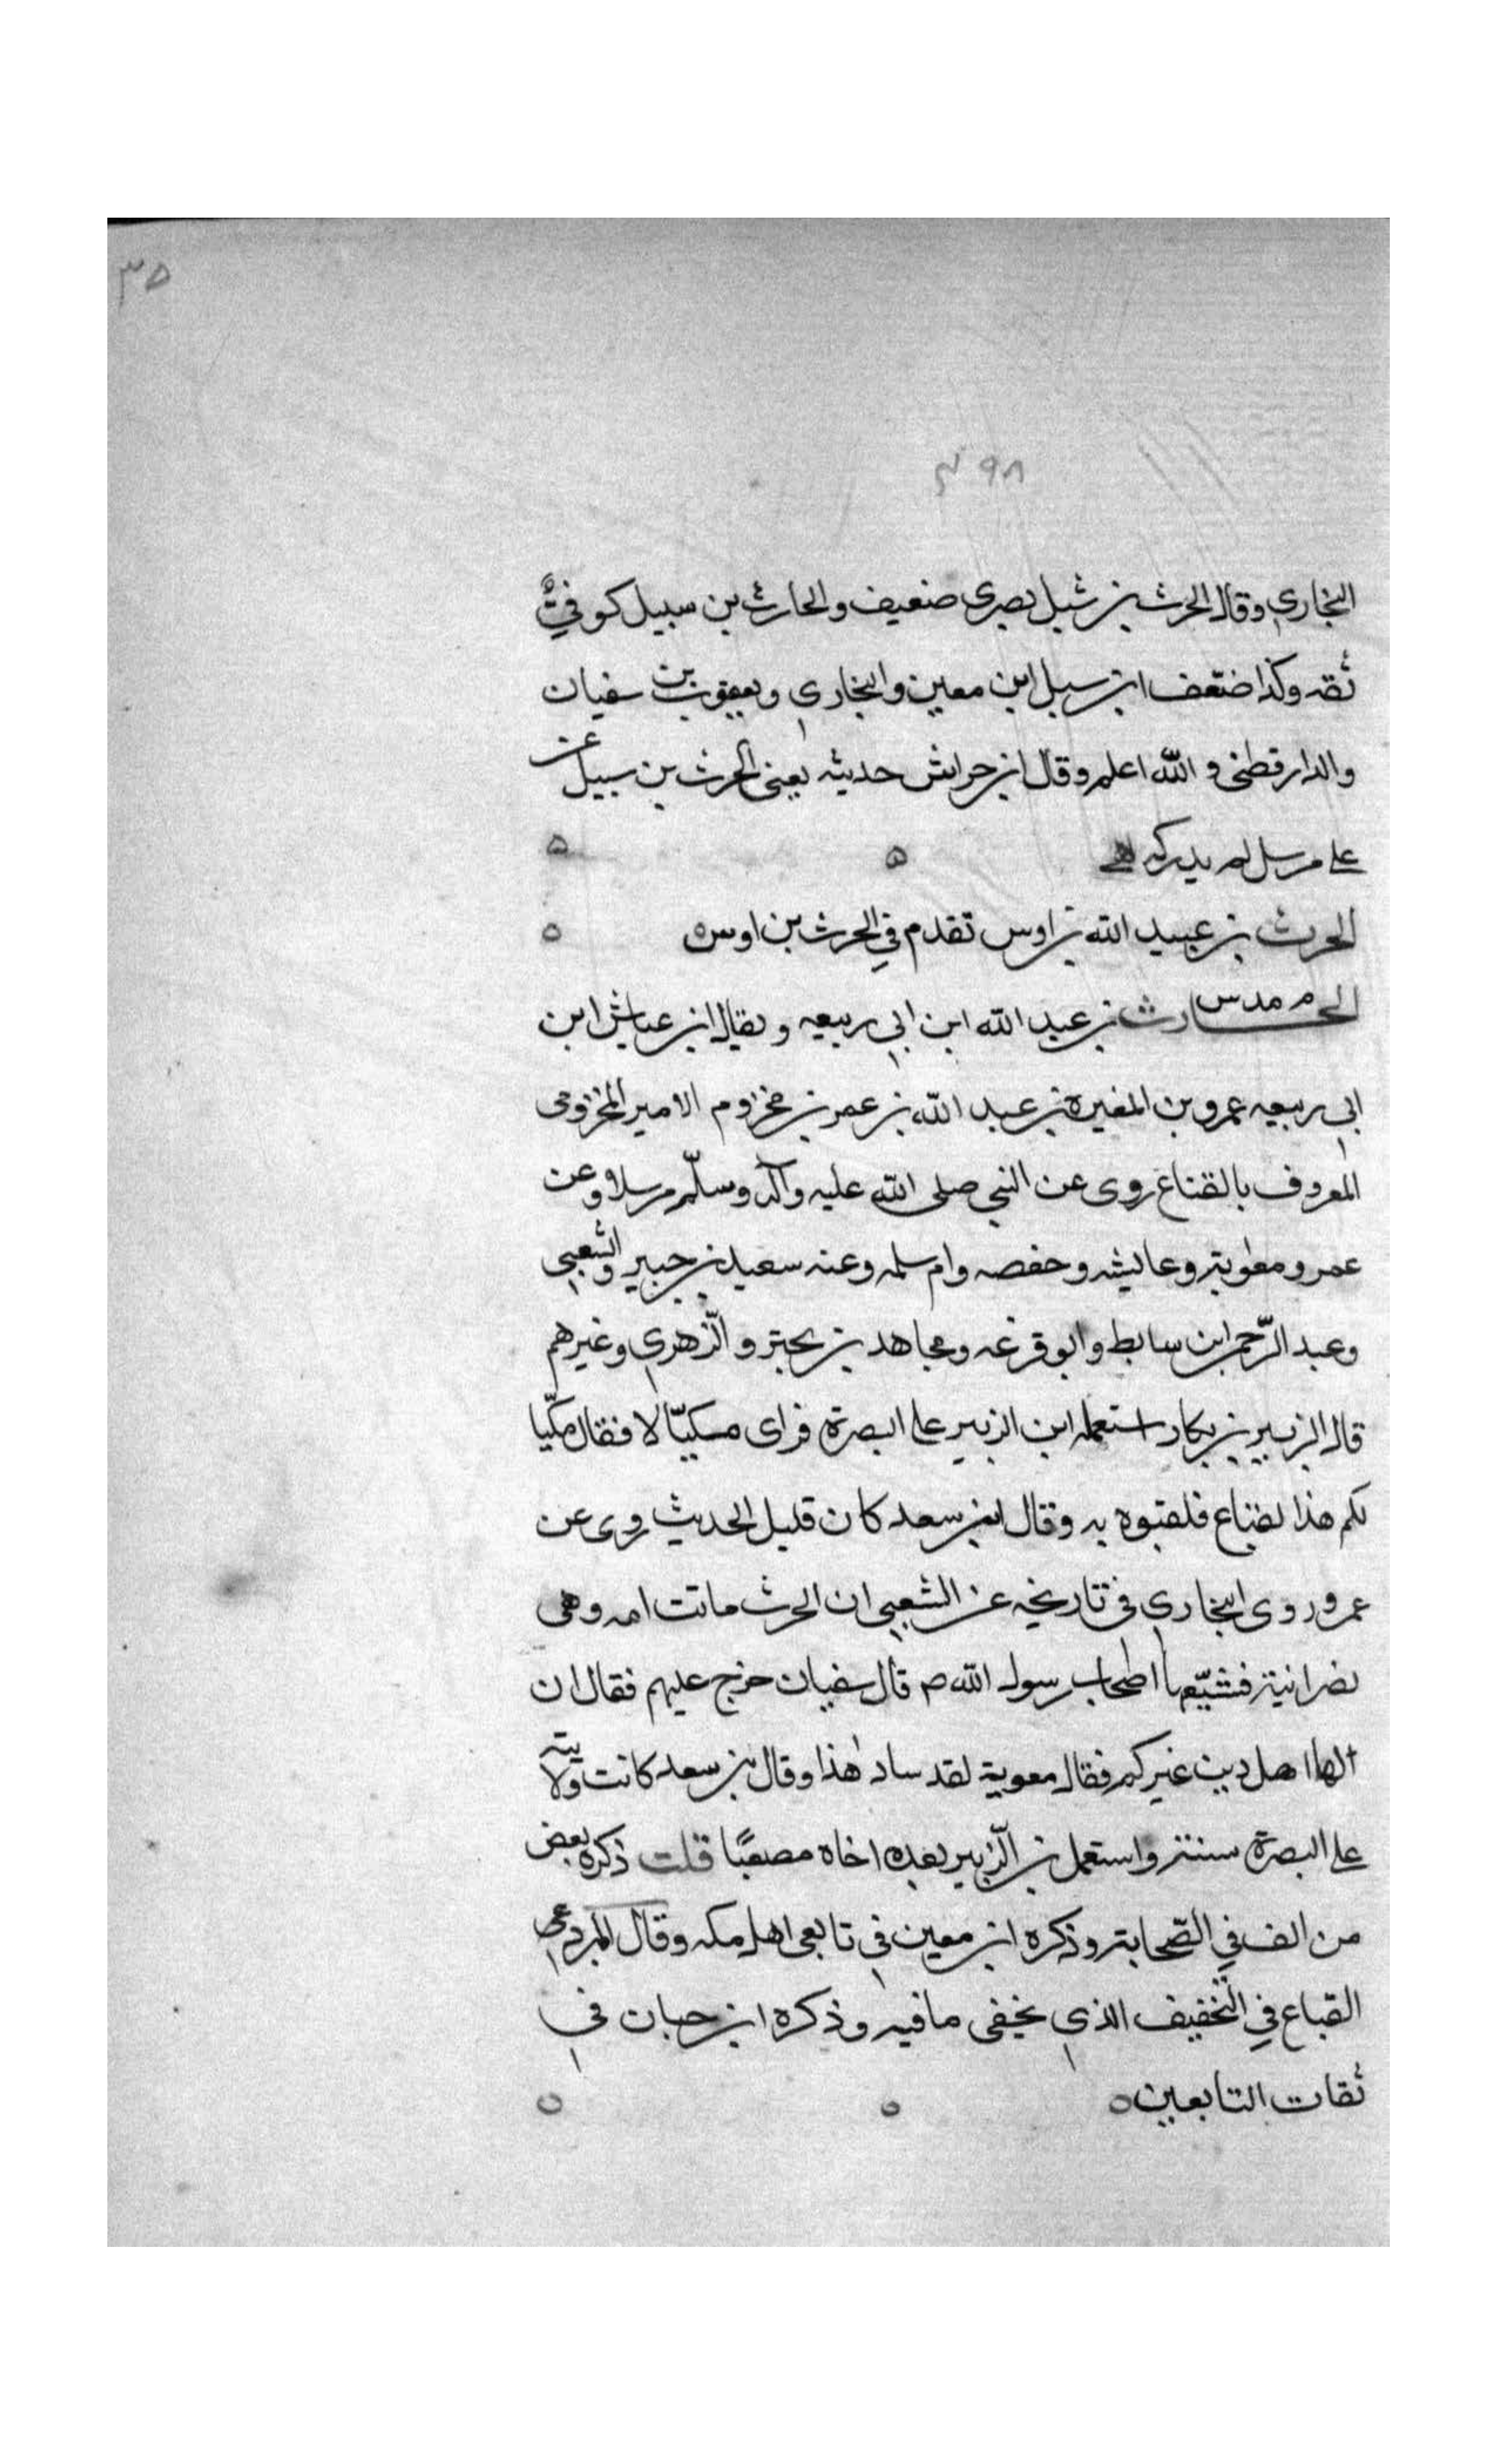 ٣٥
٣٩٨
البخاري وقال الحرث بن شبل بصرى ضعيف والحارث بن سبيل كوفيٌ
ثقه وكذا ضعف ابن سبل ابن معين والبخاري ويعقوب بن سفيان
والدارقطنى والله اعلم وقال ابن خراش حديثه يعنى الحرث بن سبيل عن
على مرسل لم يدركه
الحرث بن عبيد الله بن اوس تقدم في الحرث بن اوس
م مد س
الحارث بن عبد الله ابن ابى ربيعه ويقال ابن عياش ابن
ابى ربيعه عمرو بن المغيرة بن عبد الله بن عمر بن مخزوم الامير المخزومى
المعروف بالقناع روى عن النبي صلى الله عليه وآله وسلّم مرسلا وعن
عمر ومعوية وعايشه وحفصه وام سلمه وعنه سعيد بن جبير والشعبى
وعبد الرّحمن ابن سابط وابو قزعه ومجاهد بن جبر والزّهرى وغيرهم
قال الزبير بن بكار استعمله ابن الزبير على البصرة فراى مسكيّالا فقال مكيّا
لكم هذا لضباع فلقبوه به وقال ابن سعد كان قليل الحديث روى عن
عمر وروى البخارى فى تاريخه عن الشعبى ان الحرث ماتت امه وهى
نصرانية فشيّعها اصحاب رسول الله ص قال سفيان خرج عليهم فقال ان
لها اهل دين غيركم فقال معوية لقد ساد هذا وقال بن سعد كانت ولايته
على البصرة سنة واستعمل بن الزّبير بعده اخاه مصعبًا قلت ذكره بعض
من الف في الصّحابة وذكره ابن معين فى تابعى اهل مكه وقال المبرد
القباع في التخفيف الذى يخفى ما فيه وذكره ابن حبان فى
ثقات التابعين